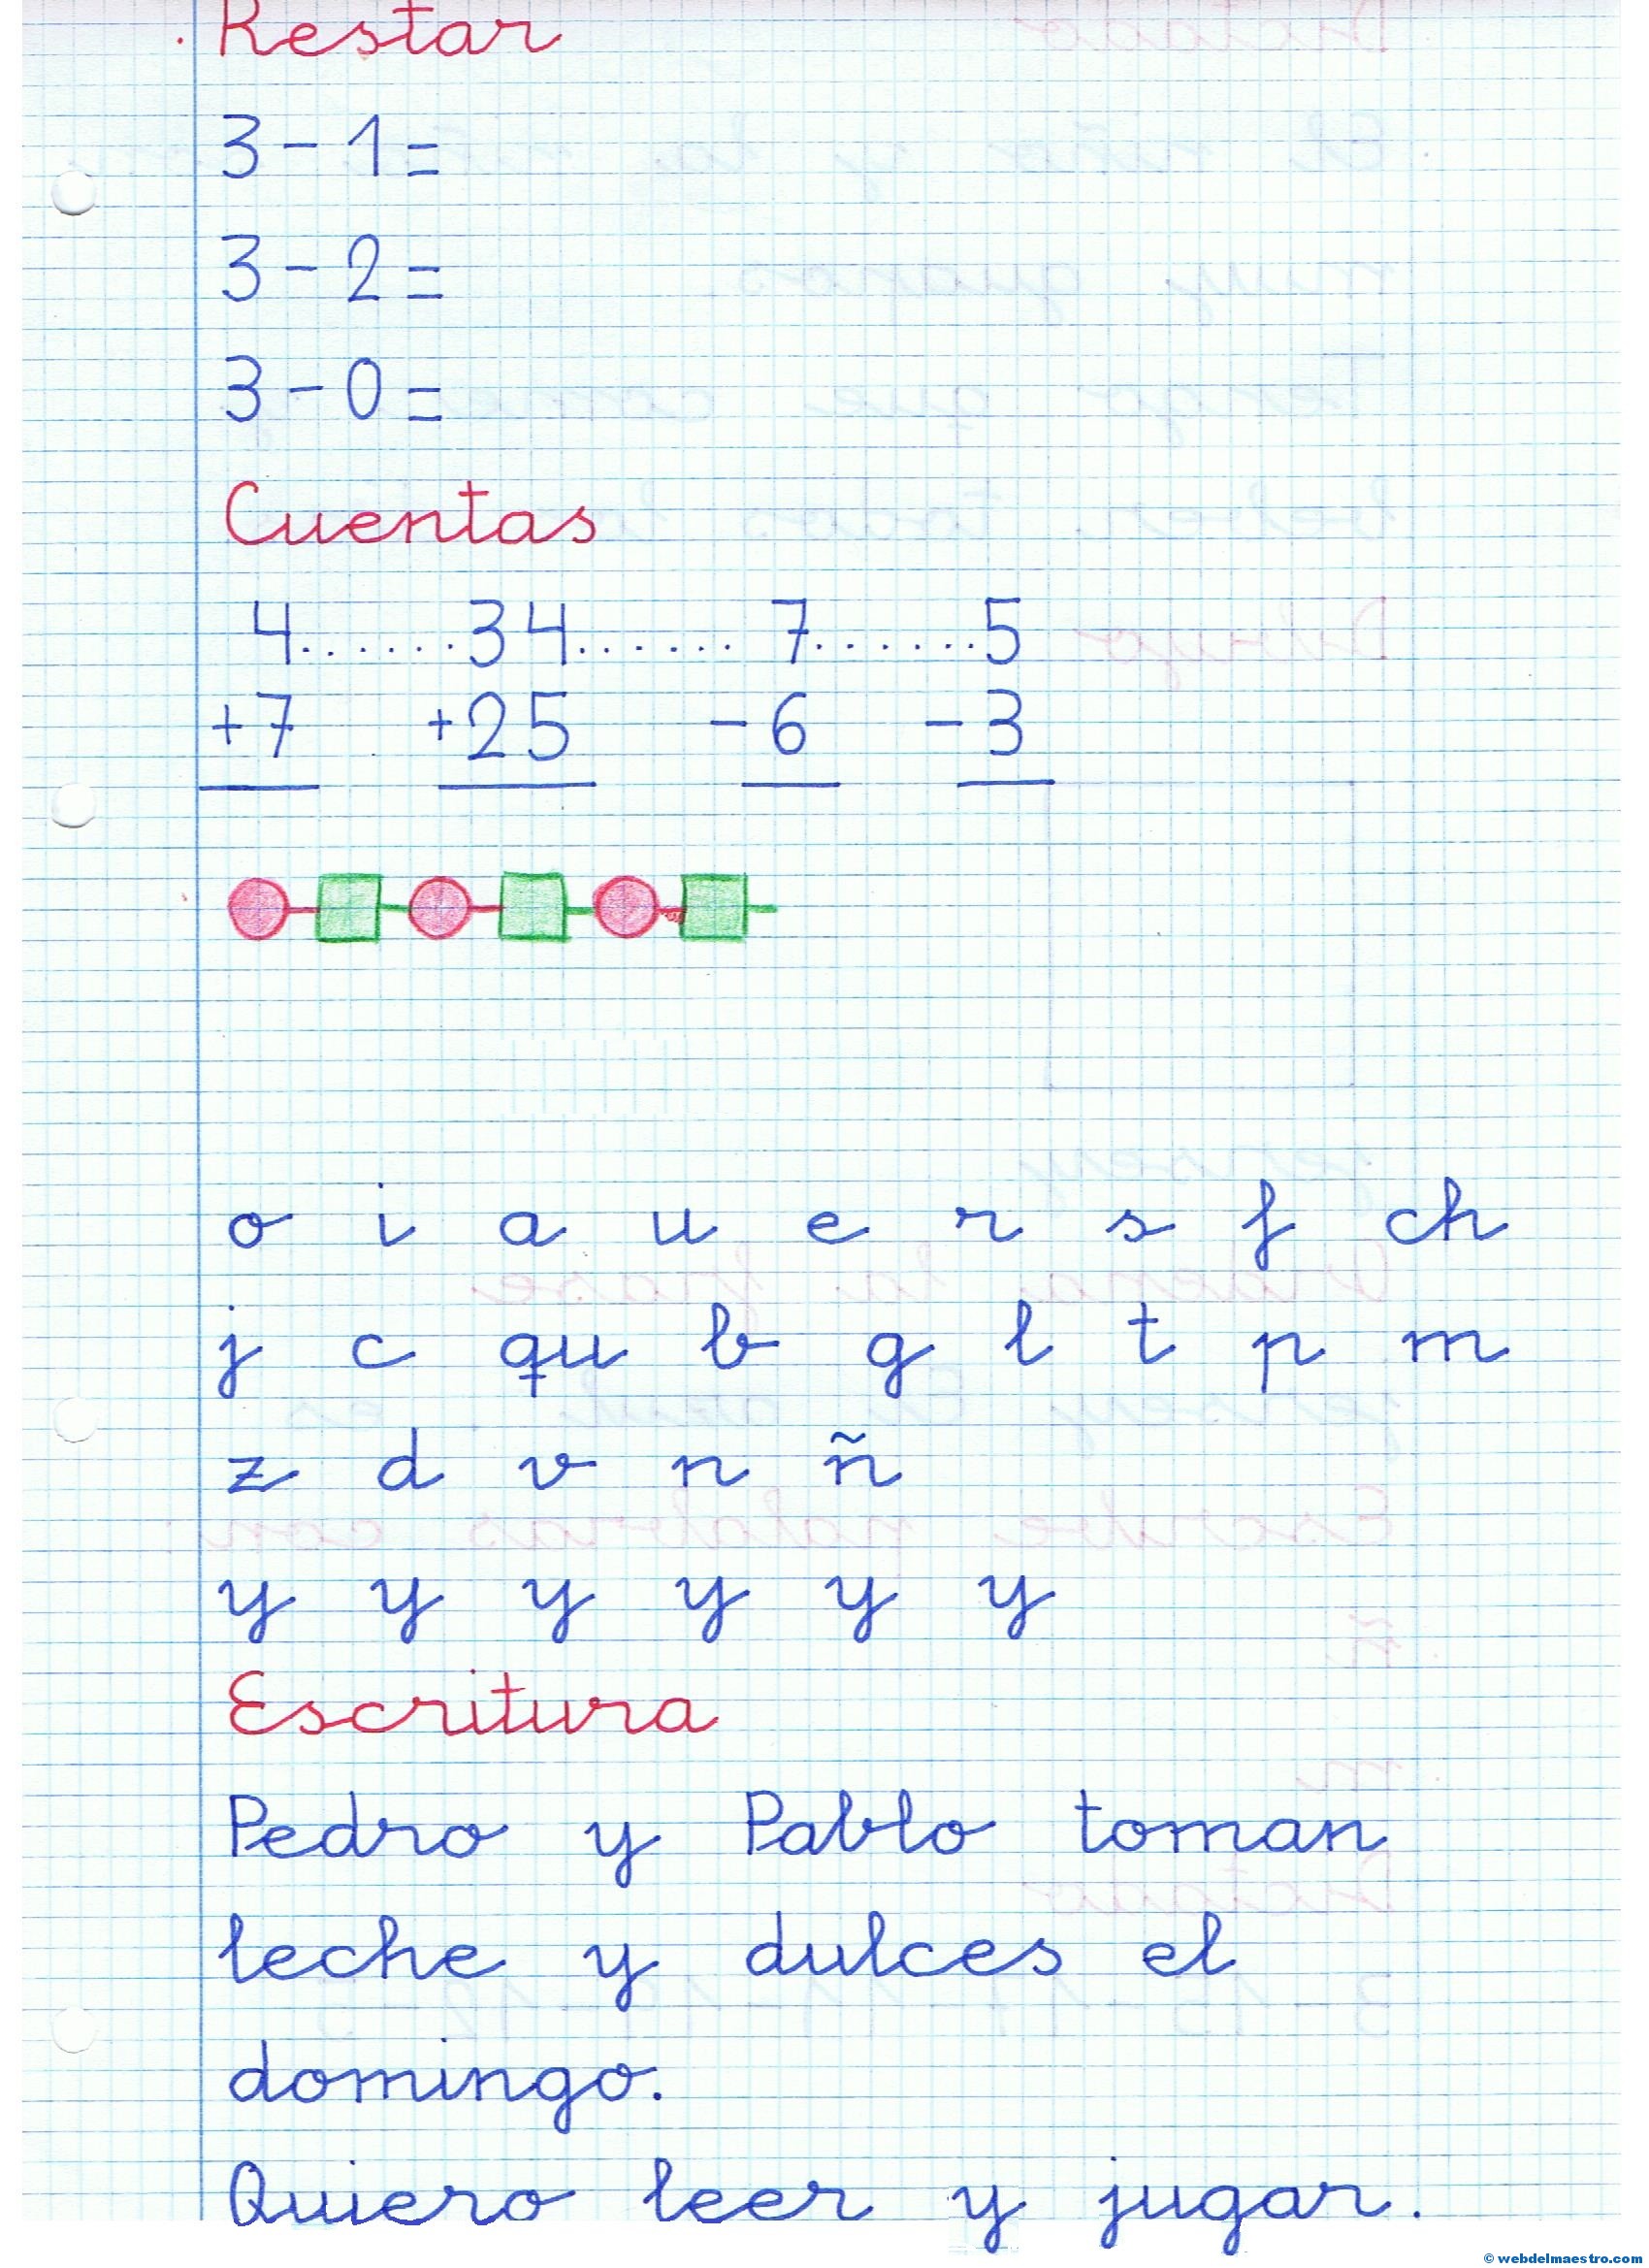 Restar
3 - 1 =
3 - 2 =
3 - 0 =
Cuentas
4.......34....... 7.......5
+7 +25 - 6 - 3
o i a u e r s f ch
j c qu b g l t p m
z d v n ñ
y y y y y y
Escritura
Pedro y Pablo toman
leche y dulces el
domingo.
Quiero leer y jugar.
© webdelmaestro.com